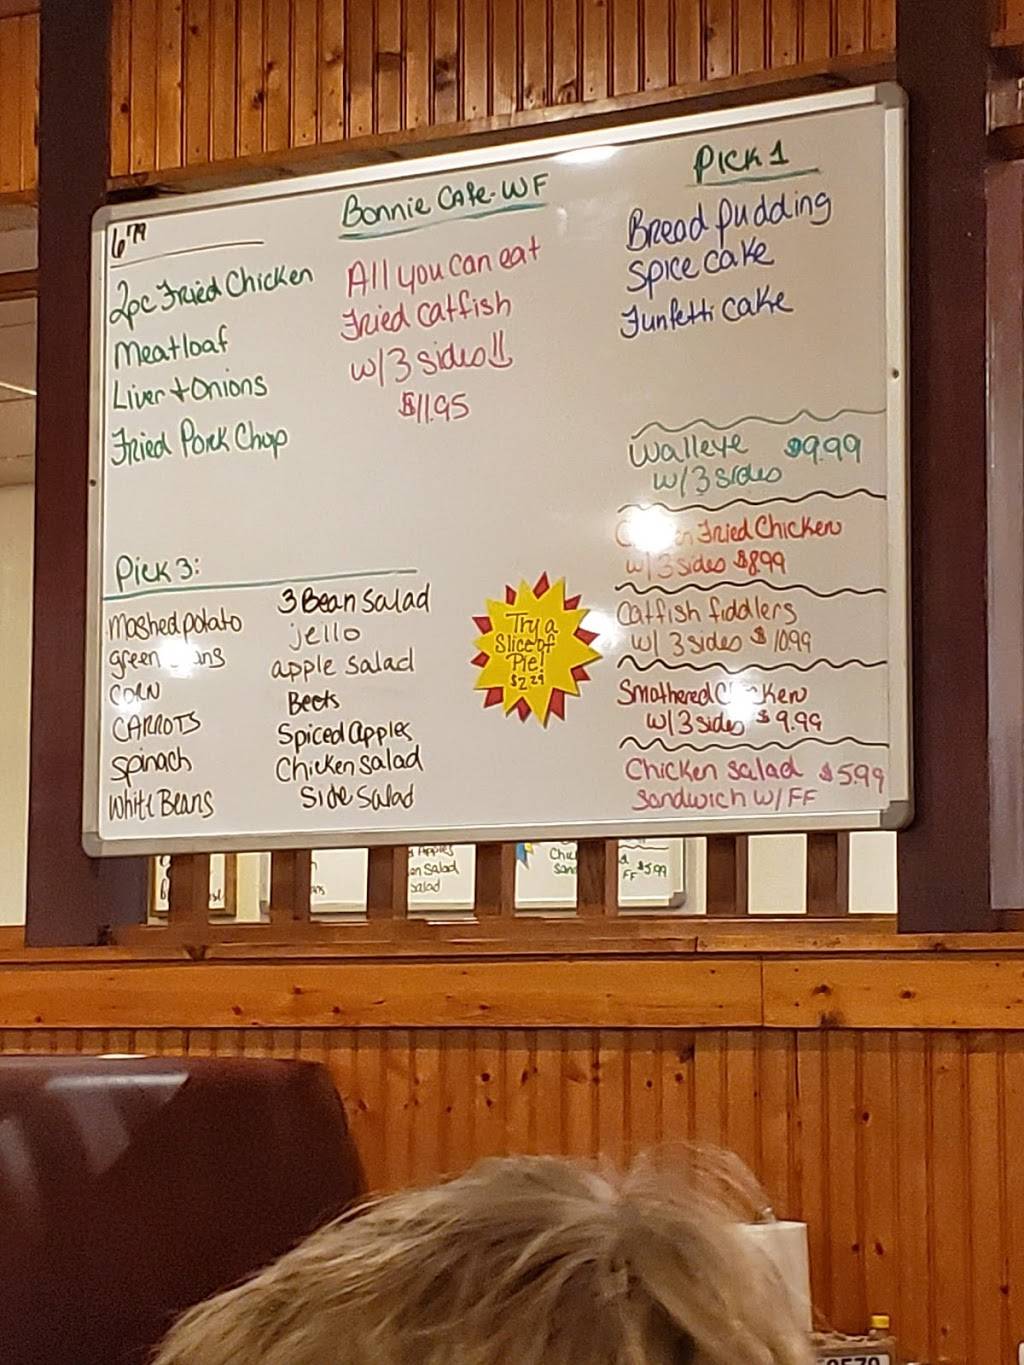 Bonnie Cafe-WF
6.79
2pc Fried Chicken
Meatloaf
Liver + Onions
Fried Pork Chop
All you can eat
Fried catfish
w/3 sides!!
$11.95
Pick 1
Bread pudding
Spice cake
Funfetti cake
Walleye $9.99
w/3 sides
Fried Chicken
w/ 3 sides $8.99
Catfish fiddlers
w/ 3 sides $10.99
Smothered Chicken
w/3 sides $9.99
Chicken salad $5.99
sandwich w/FF
Pick 3:
Mashed potato
green beans
CORN
CARROTS
Spinach
White Beans
3 Bean Salad
jello
apple salad
Beets
Spiced apples
Chicken salad
Side salad
Try a
Slice of
Pie!
$2.29
Apples
en Salad
salad
Chic
Sand
FF $5.99